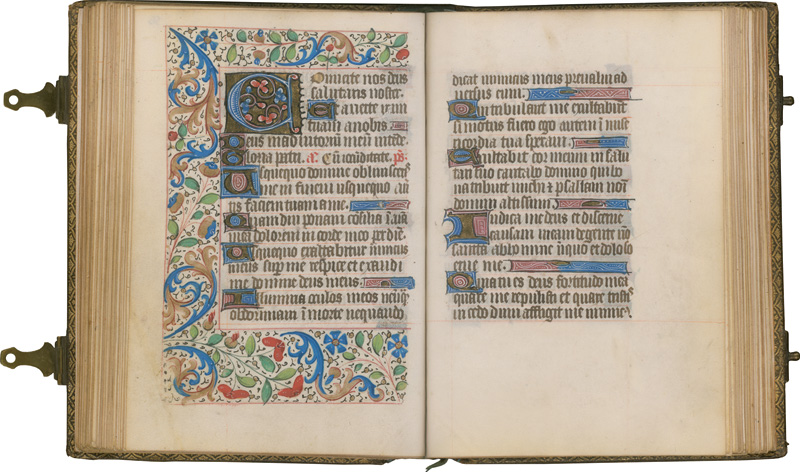 Onuerte nos deus
salutaris noster.
Et auerte iram
tuam a nobis
Deus in adiutoriu meu intede.
Gloria patri. a. Cu iocunditate. ps.
Usquequo domine obliuisceris
me in finem usquequo auer
tis faciem tuam a me.
Quamdiu ponam consilia i aia
mea dolorem in corde meo per die.
Usquequo exaltabitur inimicus
meus sup me respice et exaudi
me domine deus meus.
Illumina oculos meos ne uq
obdormiam i morte nequando
dicat inimicus meus preualui ad
uersus eum.
Qui tribulant me exultabunt
si motus fuero ego autem i mise
ricordia tua speraui.
Exultabit cor meum in salu
tari tuo cantabo domino qui bo
na tribuit michi et psallam noi
domini altissimi.
Iudica me deus et discerne
causam meam de gente no
sancta ab homine iniquo et doloso
erue me.
Quia tu es deus fortitudo mea
quare me repulisti et quare tristis
incedo dum affligit me inimic